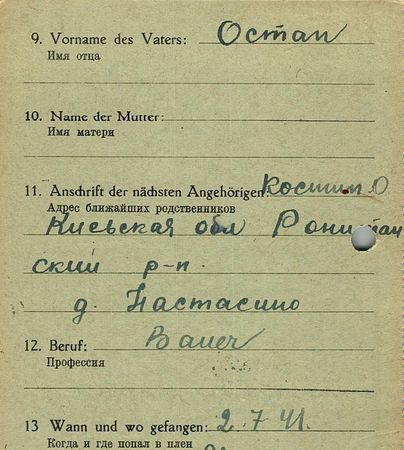 9. Vorname des Vaters: Остап
Имя отца
10. Name der Mutter:
Имя матери
11. Anschrift der nächsten Angehörigen:
Адрес ближайших родственников
Киевская обл
ский р-н.
д. Настасино
12. Beruf: Bauer
Профессия
13 Wann und wo gefangen: 2.7.41.
Когда и где попал в плен